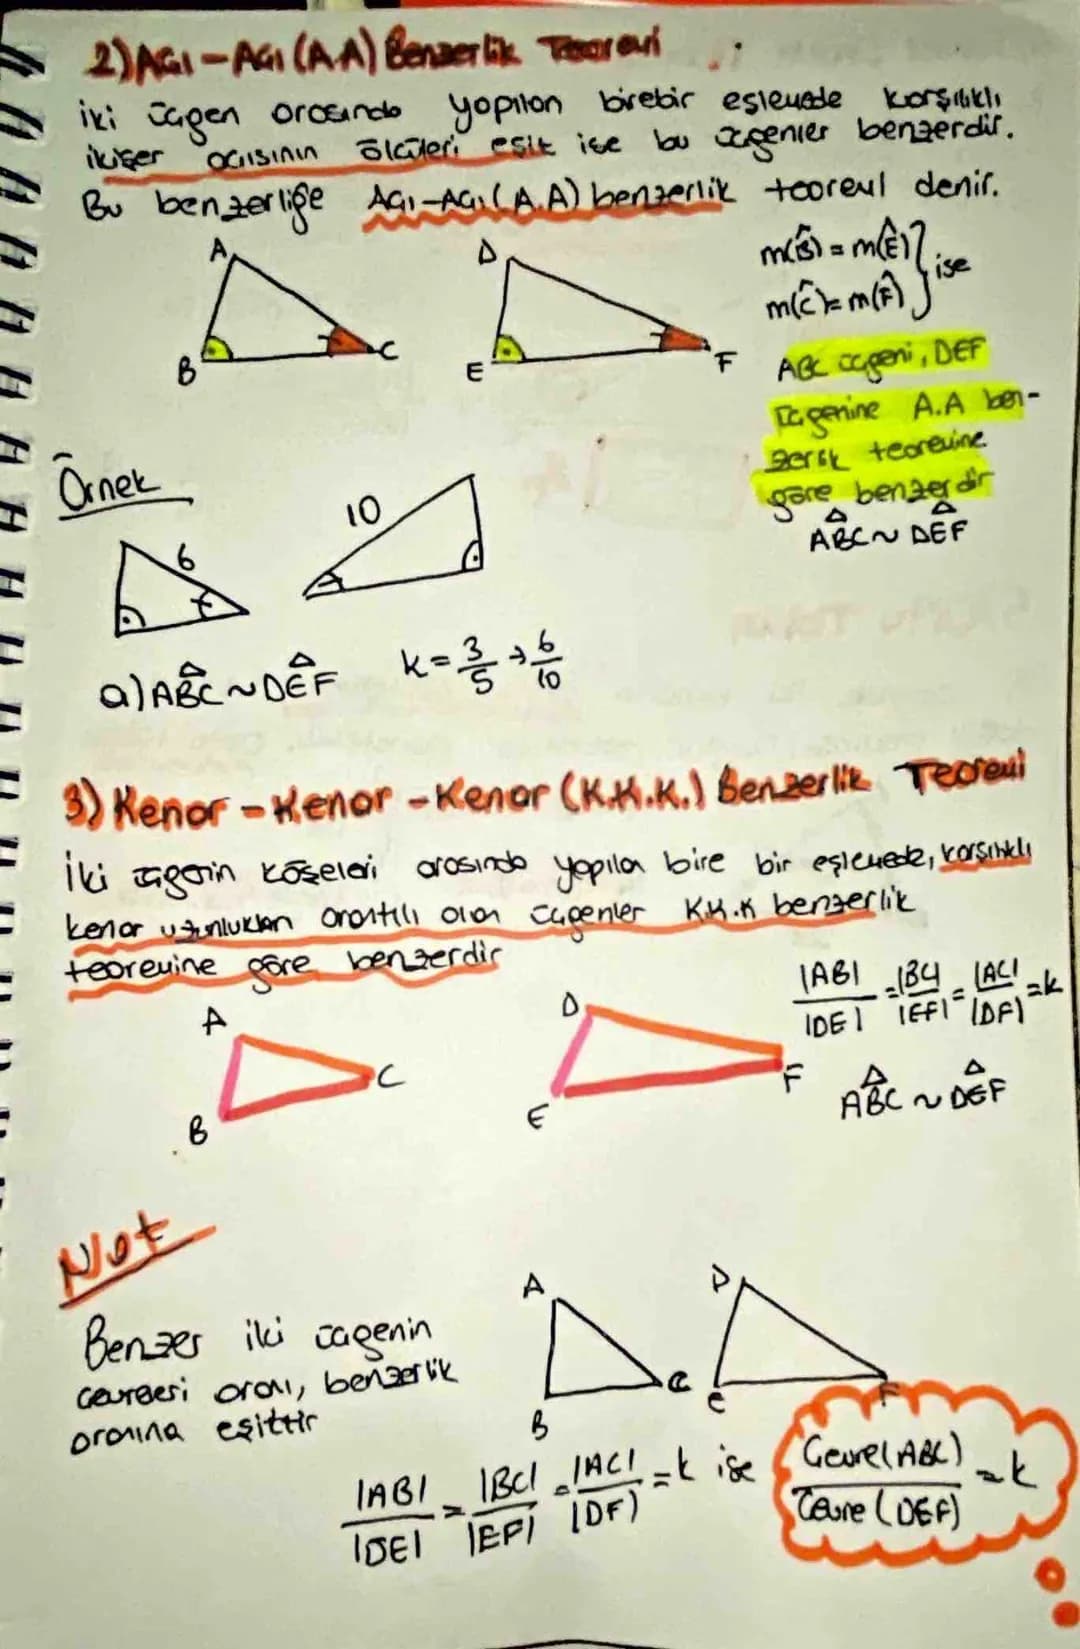 2) AÇI - AÇI (A.A) Benzerlik Teoremi
İki üçgen arasında yapılan birebir eşlemede karşılıklı
ikişer açısının ölçüleri eşit ise bu üçgenler benzerdir.
Bu benzerliğe AÇI-AÇI (A.A) benzerlik teoremi denir.
A
B
C
D
E
F
m(B̂) = m(Ê)
m(Ĉ) = m(F̂) } ise
ABC üçgeni, DEF
üçgenine A.A ben-
zerlik teoremine
göre benzerdir
ABC ~ DEF
Örnek
6
10
a) ABC ~ DEF k = 3/5 → 6/10
3) Kenar - Kenar - Kenar (K.K.K.) Benzerlik Teoremi
İki üçgenin köşeleri arasında yapılan bire bir eşlemede, karşılıklı
kenar uzunlukları orantılı olan üçgenler K.K.K benzerlik
teoremine göre benzerdir
|AB|/|DE| = |BC|/|EF| = |AC|/|DF| = k
A
B
C
D
E
F
ABC ~ DEF
Not
Benzer iki üçgenin
çevreleri oranı, benzerlik
oranına eşittir
A
B
C
D
E
F
|AB|/|DE| = |BC|/|EF| = |AC|/|DF| = k ise Çevre(ABC)/Çevre(DEF) = k